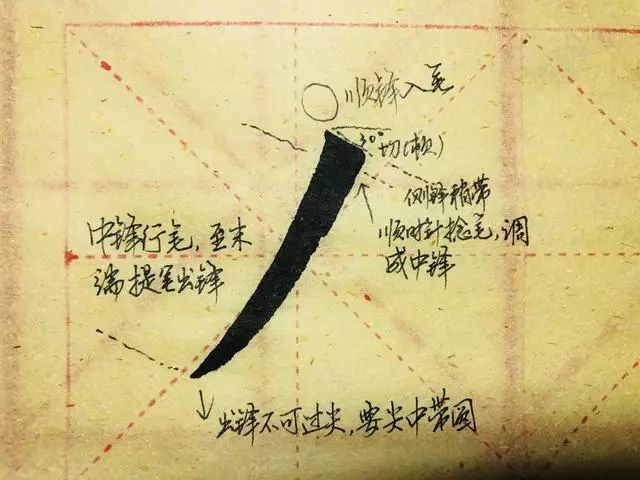 顺锋入笔
30°
切(顿)
侧锋稍带
顺时针捻笔,调
成中锋
中锋行笔,至末
端提笔出锋
出锋不可过尖,要尖中带圆